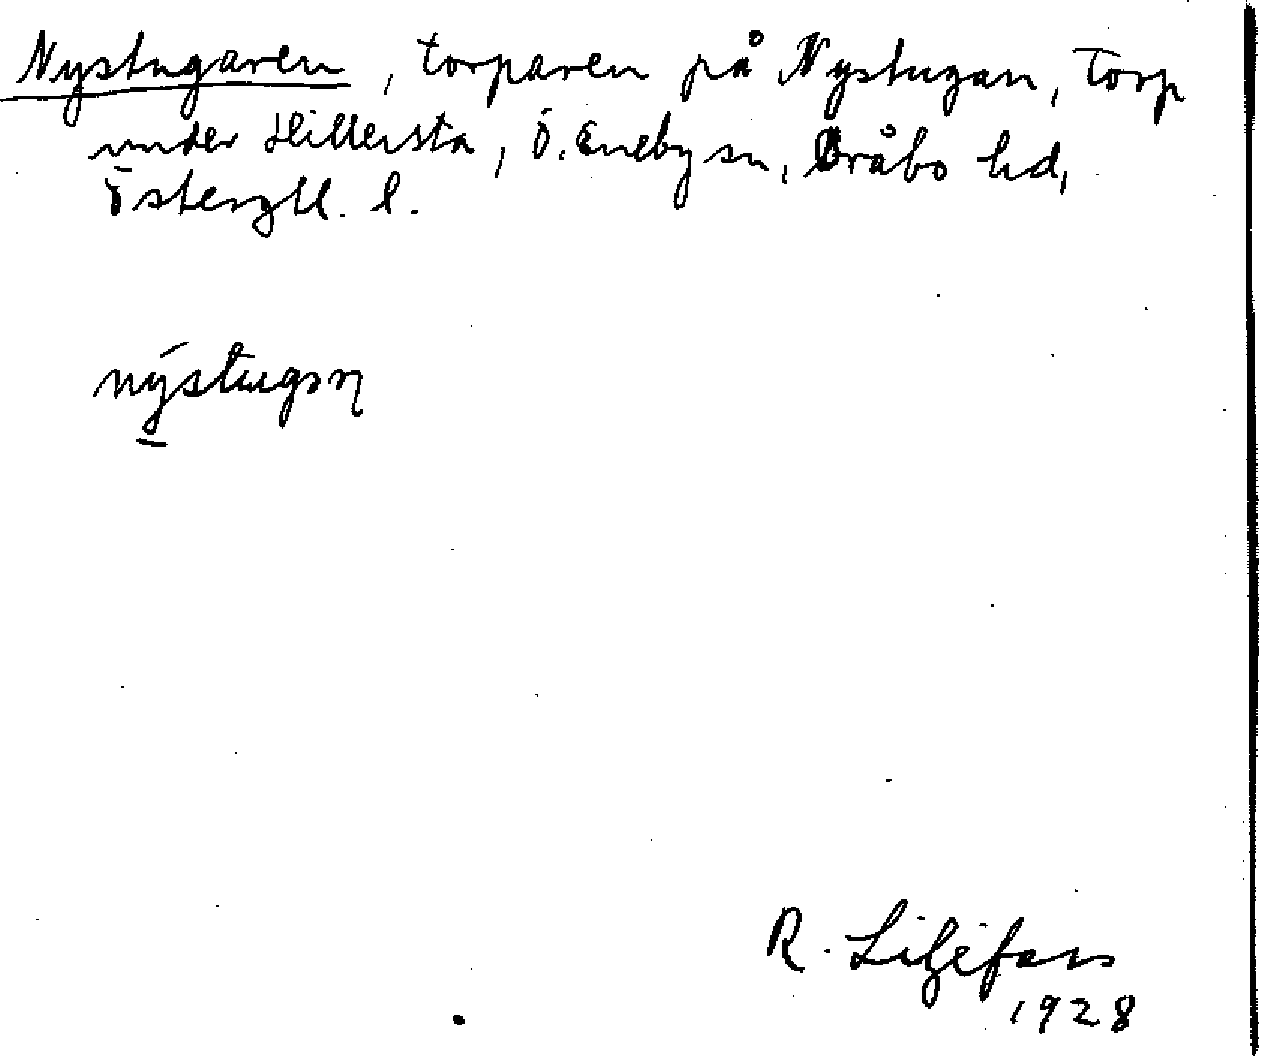 Nystugaren, torparen på Nystugan, torp
under Hillersta, Ö. Eneby sn, Bråbo hd,
Östergtl. l.
nýstugsɳ
R. Liljefors
1928